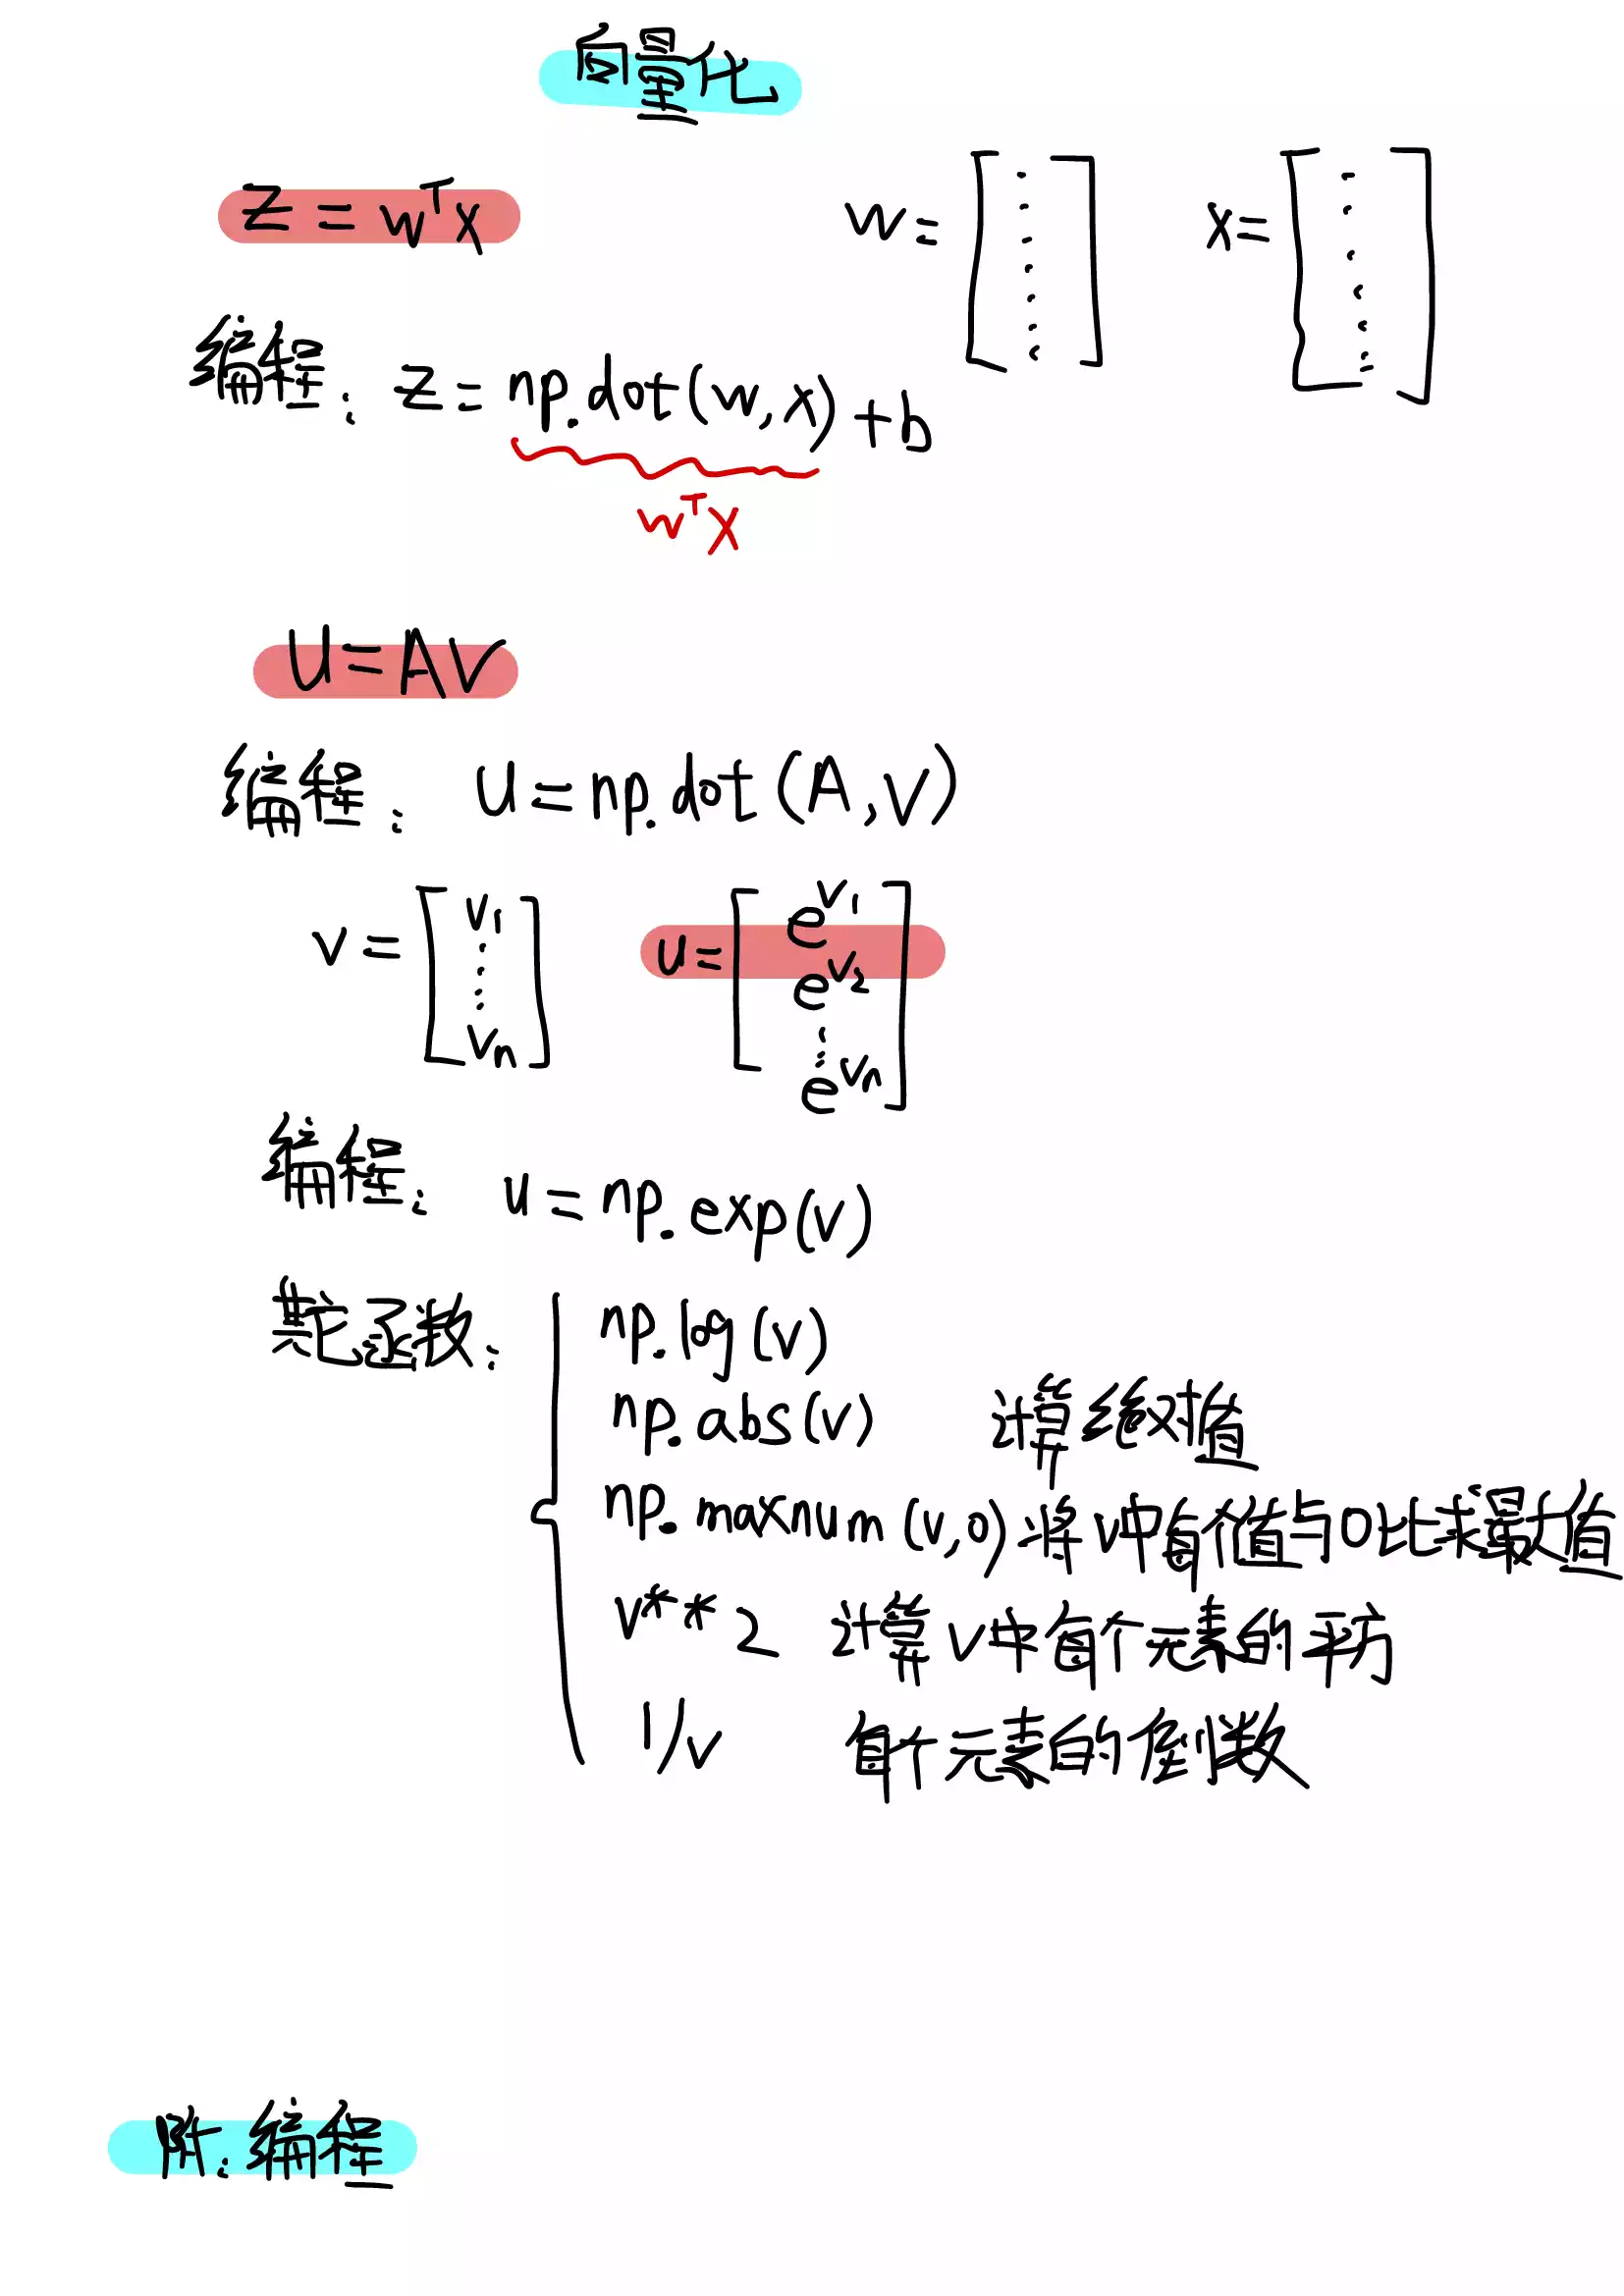 向量化
z = wᵀx
w = [ ⋮ ] x = [ ⋮ ]
编程: z = np.dot(w,x)+b
wᵀx
U=AV
编程: U=np.dot(A,V)
v = [ v₁ ⋮ vₙ ] u = [ e^v₁ e^v₂ ⋮ e^vₙ ]
编程: u=np.exp(v)
其它函数: np.log(v)
np.abs(v) 计算绝对值
np.maxnum(v,0) 将v中每个值与0比求最大值
v**2 计算v中每个元素的平方
1/v 每个元素的倒数
附:编程